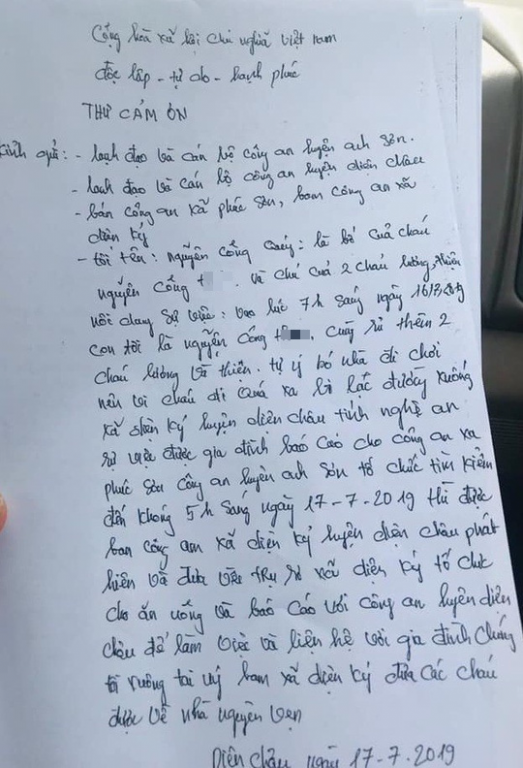 Cộng hòa xã hội chủ nghĩa việt nam
độc lập - tự do - hạnh phúc
THƯ CẢM ƠN
Kính gửi: - lãnh đạo và cán bộ công an huyện anh sơn.
- lãnh đạo và cán bộ công an huyện diện châu
- bán công an xã phúc sơn, ban công an xã
diện kỷ
- tôi tên: nguyễn công quý: là bố của cháu
nguyễn công t và chú của 2 cháu lương, thiện
nội dung sự việc: vào lúc 7h sáng ngày 16/7/2019
con tôi là nguyễn công t, cùng rủ thêm 2
cháu lương và thiện. tự ý bỏ nhà đi chơi
nên cháu đi quá xa bị lạc đường xuống
xã diện kỷ huyện diện châu tỉnh nghệ an
sự việc được gia đình báo cáo cho công an xã
phúc sơn công an huyện anh sơn tổ chức tìm kiếm
đến khoảng 5h sáng ngày 17-7-2019 thì được
ban công an xã diện kỷ huyện diện châu phát
hiện và đưa về trụ sở xã diện kỷ tổ chức
cho ăn uống và báo cáo với công an huyện diện
châu để làm việc và liện hệ với gia đình chúng
tôi xuống tại uỷ ban xã diện kỷ đưa các cháu
được về nhà nguyện vẹn
Diên châu ngày 17-7.2019